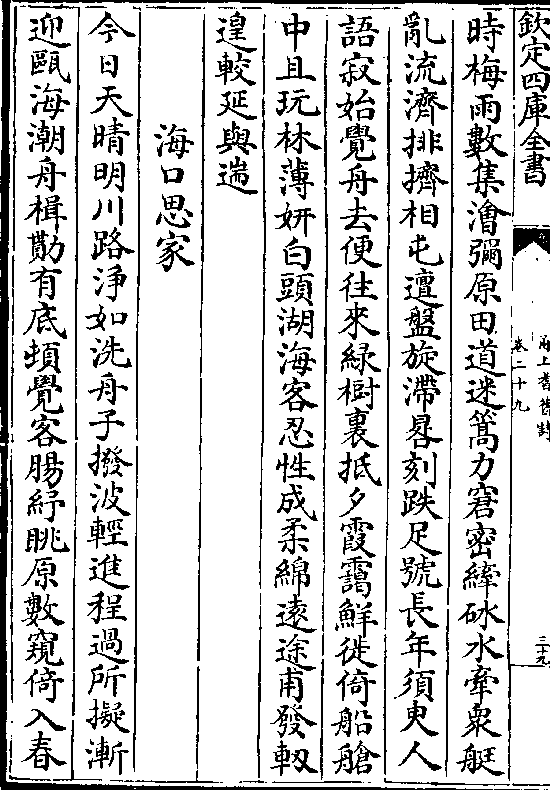 欽定四庫全書
甬上耆舊詩
卷二十九
三十九
時梅雨數集澮彌原田道迷篙力窘密縴砅水牽衆艇
亂流濟排擠相屯邅盤旋滯晷刻跌足號長年須臾人
語寂始覺舟去便往來綠樹裏抵夕霞靄鮮徙倚船艙
中且玩林薄妍白頭湖海客忍性成柔綿遠途甫發軔
遑較延與遄
海口思家
今日天晴明川路淨如洗舟子撥波輕進程過所擬漸
迎甌海潮舟楫勩有底頓覺客腸紓眺原數窺倚入春